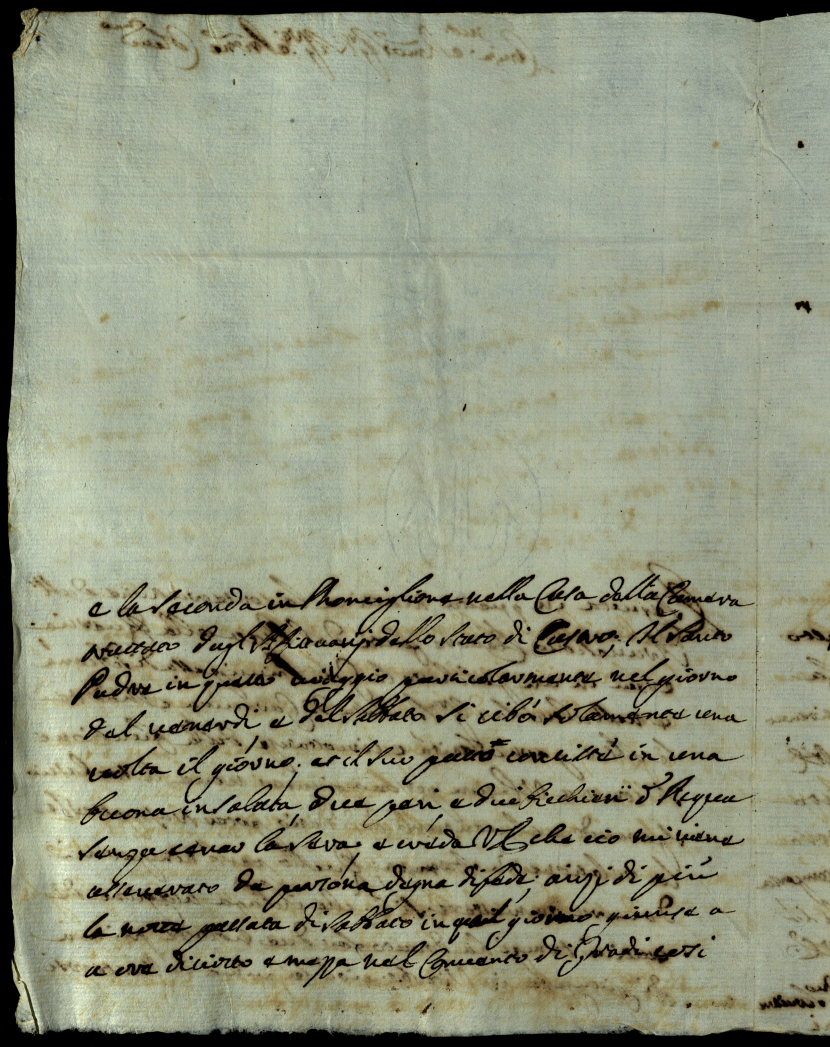 e la seconda in Ronciglione nella Casa della Camera
trattato dagl'Affittuarij dello Stato di Castro, Il Santo
Padre in questo viaggio particolarmente nel giorno
del venerdi, e del Sabbato si cibò solamente una
volta il giorno, et il suo pasto consisté in una
buona insalata, due pani, e due bicchieri d'Acqua
senza cenar la sera, e creda VS che ciò mi viene
asseverato da persona degna di fede, anzi di più
la notte passata di Sabbato in qual giorno giunse a
a ore diciotto e mezza nel Convento di Gradi così